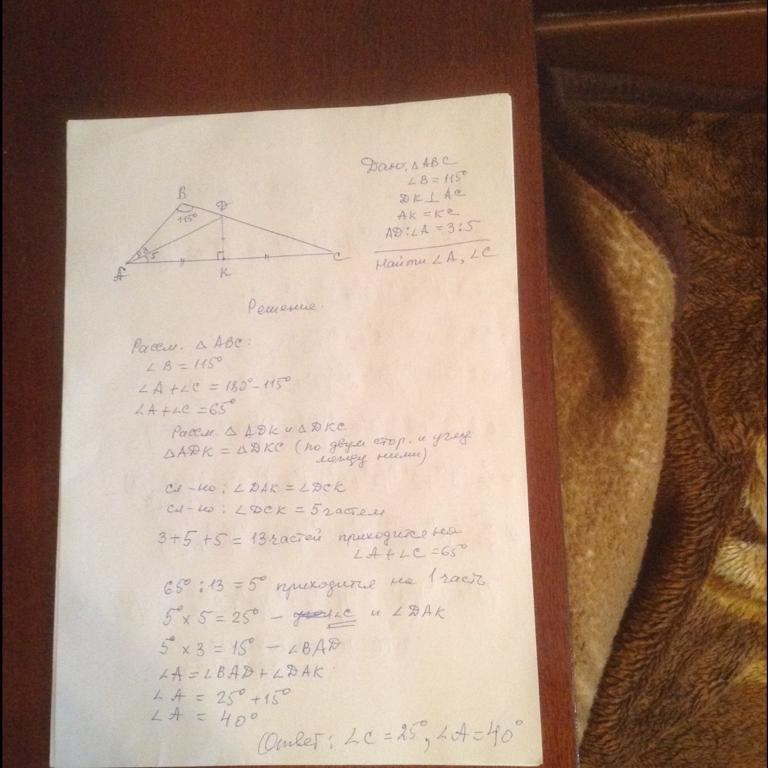 Дано: △ABC
∠B = 115°
DK ⊥ AC
AK = KC
AD:∠A = 3:5
Найти ∠A, ∠C
B
D
115°
3
5
A
K
C
Решение.
Рассм. △ABC:
∠B = 115°
∠A+∠C = 180°-115°
∠A+∠C = 65°
Рассм. △ADK и △DKC
△ADK = △DKC (по двум стор. и углу
между ними)
сл-но: ∠DAK = ∠DCK
сл-но: ∠DCK = 5 частем
3+5+5 = 13 частей приходится на
∠A+∠C = 65°
65° : 13 = 5° приходится на 1 часть
5° × 5 = 25° - ∠C и ∠DAK
5° × 3 = 15° - ∠BAD
∠A = ∠BAD+∠DAK
∠A = 25°+15°
∠A = 40°
Ответ: ∠C = 25°, ∠A = 40°